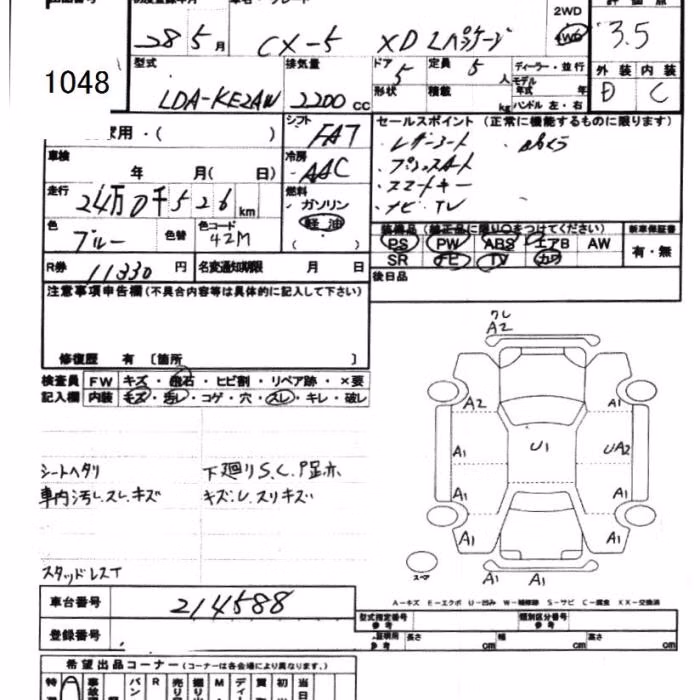 初度登録年月
2WD
28 5月 CX-5 XD Lパッケージ 4WD 3.5
1048
型式 排気量 ドア 5 定員 5人 ディーラー・並行 外装 内装
LDA-KE2AW 2200cc 形状 積載 kg モデル年式 年 D C
ハンドル 左・右
家用・( ) シフト FAT セールスポイント (正常に機能するものに限ります)
・レザーシート ・
車検 年 月( 日) 冷房 AAC ・プッシュスタート
・スマートキー
走行 24万0千526km 燃料 ガソリン 軽油 ( ) ・ナビ TV
色 ブルー 色替 色コード 42M
装備品 (純正品に限り○をつけてください) 新車保証書
PS PW ABS エアB AW 有・無
SR ナビ TV カワ
R券 11330円 名変通知期限 月 日 後日品
注意事項申告欄(不具合内容等は具体的に記入して下さい)
修復歴 有 〔箇所 〕
検査員 FW キズ・飛石・ヒビ割・リペア跡・×要
記入欄 内装 キズ・汚レ・コゲ・穴・スレ・キレ・破レ
ワレ
A2
A2 A1
A1 U1 UA2
A1 A1
A1 A1
A1 A1
スペア
シートヘタリ 下廻りS.C.
車内汚レ.スレ.キズ キズ.U.スリキズ
スタッドレスT
A-キズ E-エクボ U-凹み W-補修跡 S-サビ C-腐食 XX-交換済
車台番号 214588
型式指定番号 参考 類別区分番号 参考
登録番号
長さ cm 幅 cm 高さ cm
希望出品コーナー (コーナーは各会場により異なります。)